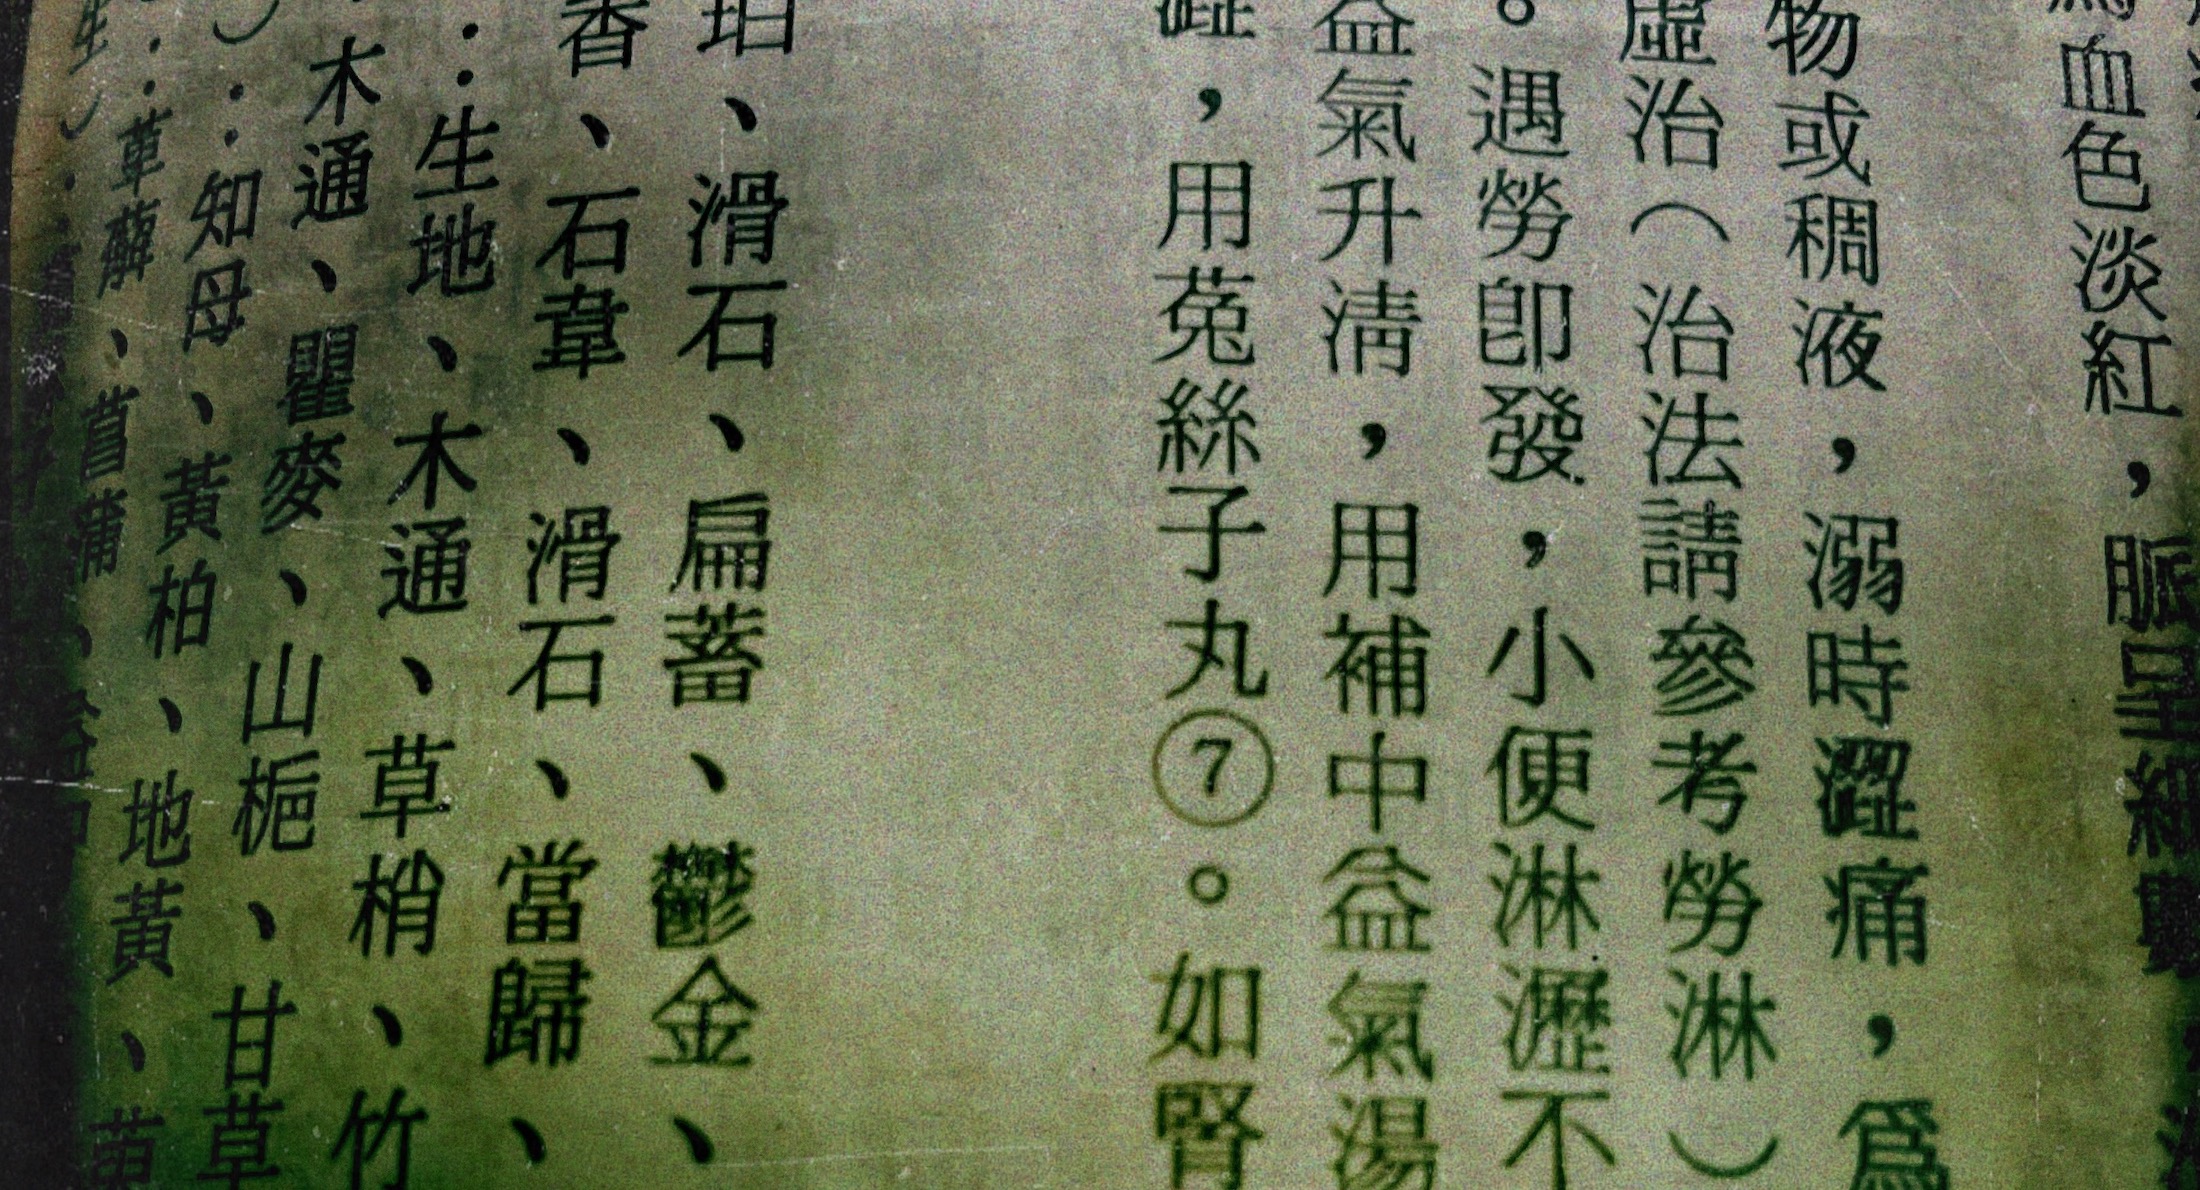 血色淡紅，脈呈細
物或稠液，溺時澀痛，爲
虛治（治法請參考勞淋）
。遇勞卽發，小便淋瀝不
益氣升淸，用補中益氣湯
澀，用菟絲子丸⑦。如腎
珀、滑石、扁蓄、鬱金、
香、石韋、滑石、當歸、
：生地、木通、草梢、竹
木通、瞿麥、山梔、甘草
）：知母、黃柏、地黃、
：萆薢、菖蒲、